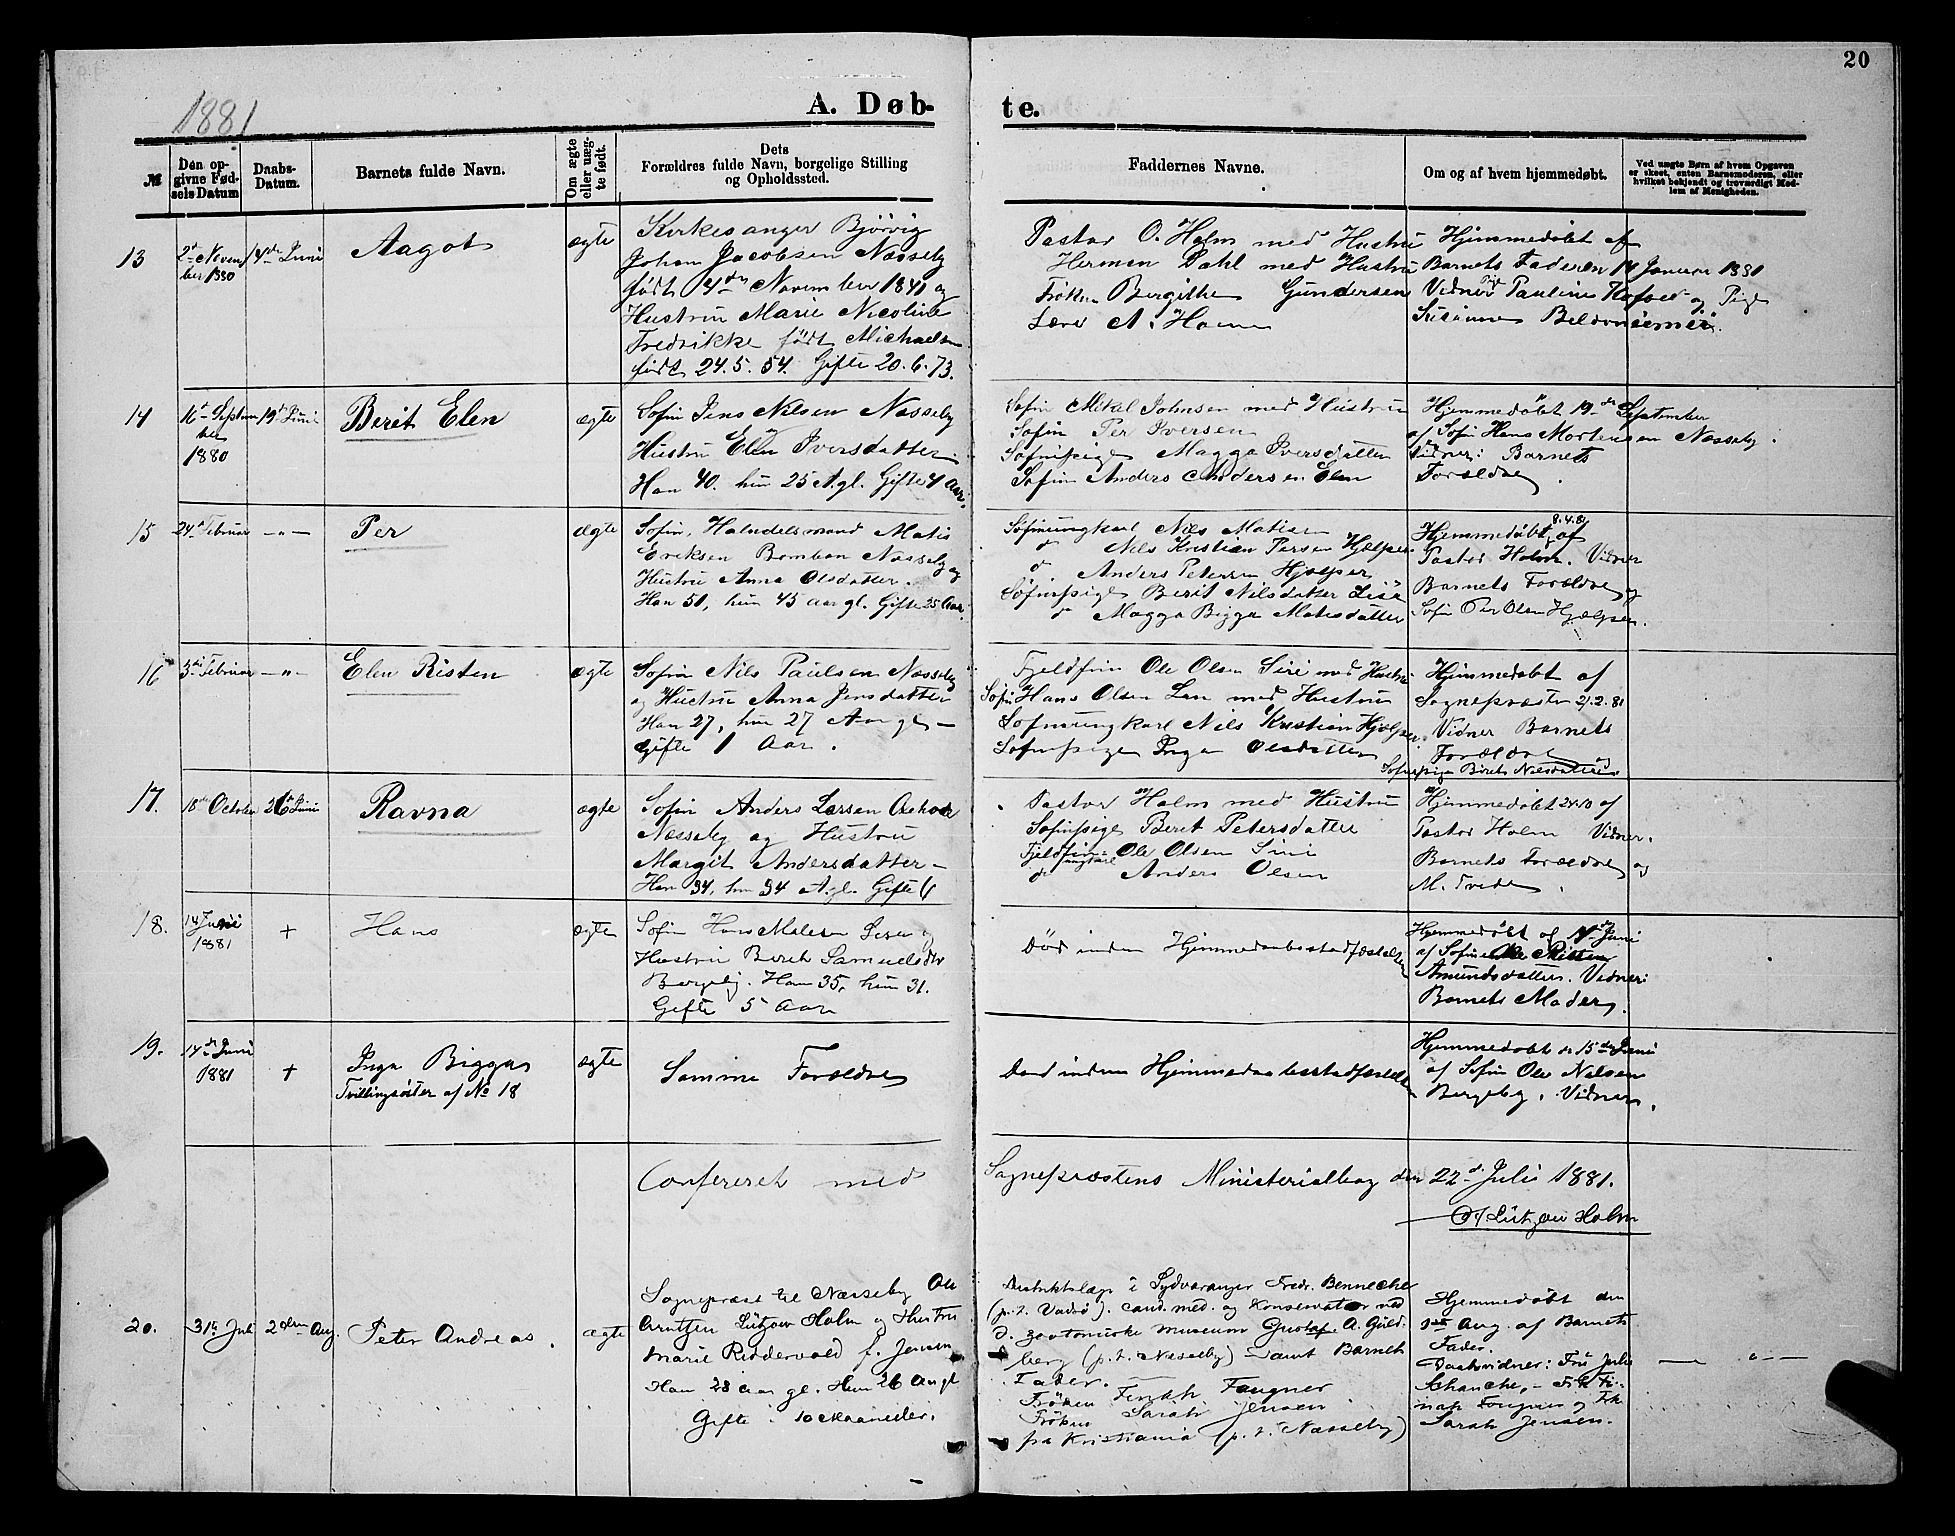 20
1881
A. Døb-
te.
№
Den op-
givne Fød-
sels Datum
Daabs-
Datum.
Barnets fulde Navn.
Om ægte
eller uæg-
te født.
Dets
Forældres fulde Navn, borgelige Stilling
og Opholdssted.
Faddernes Navne.
Om og af hvem hjemmedøbt.
Ved uægte Børn af hvem Opgaven
er skeet, enten Barnemoderen, eller
hvilket bekjendt og troværdigt Med-
lem af Menigheden.
13
2d Novem
ber 1880
Juni
Aagot
ægte
Kirkesanger Bjørvig
Johan Jacobsen Næsseby
født 4de November 1841 og
Hustru Marie Nicoline
Fredrikke født Michaelsen
født 24.5.54. Gifte 20.6.73.
Pastor O. Holm med Hustru
Herman Dahl med Hustru
Frøken Bergithe Gundersen
Hjemmedøbt af
Barnets Faderen 14 Januar 1881
Vidner Pige Pauline og Pige
14
16d Septem
ber
1880
19d Juni
Berit Elen
ægte
Søfin Jens Nilsen Næsseby
Hustru Elen Iversdatter
Han 40. hun 25 A. gl. Gifte 4 Aar.
Søfin Mikel Johnsen med Hustru
Søfin Per Iversen
Søfinpige Magga Iversdatter
Søfin Anders Andersen Elen
Hjemmedøbt 19de September
af Søfin Hans Mortensen Næsseby.
Vidner: Barnets
Forældre.
15
24d Februar
-"-
Per
ægte
Søfin, Halvdelsmand Matis
Eriksen Bomban Næsseby og
Hustru Anna Olsdatter.
Han 51, hun 45 Aar gl. Gifte 25 Aar.
Søfinungkarl Nils Matisen
do Nils Kristian Persen Hjelper
do Anders Petersen Hjelper
Søfinpige Berit Nilsdatter
do Magga Bigga Matisdatter
8.4.81
Hjemmedøbt af
Pastor Holm. Vidner
Barnets Forældre og
Søfin Per Olsen Hjelper.
16
3die Februar
-"-
Elen Risten
ægte
Søfin Nils Paulsen Næsseby
og Hustru Anna Jensdatter
Han 27, hun 27 Aar gl. -
Gifte 1 Aar.
Fjeldfin Ole Olsen Siri med Hustru
Søfin Hans Olsen med Hustru
Søfinungkarl Nils Kristian Hjelper
Søfinpige Inga Olsdatter
Søfinpige Berit Nilsdatter
Hjemmedøbt af
Sognepræsten 21.2.81
Vidner Barnets
Forældre og
17.
10de October
26d Juni
Ravna
ægte
Søfin Anders Larsen
Næsseby og Hustru
Margit Andersdatter -
Han 34, hun 34 A. gl. Gifte 6
Pastor Holm med Hustru
Søfinpige Berit Petersdatter
Fjeldfin ungkarl Ole Olsen Siri
do Anders Olsen
Hjemmedøbt af
Pastor Holm Vidner.
Barnets Forældre og
18.
14 Juni
1881
+
Hans
ægte
Søfin Hans og
Hustru Berit Samuelsdtr
Bergeby. Han 35, hun 31.
Gifte 5 Aar
Død inden Hjemmedaabsstadfæstelsen
Hjemmedøbt af Juni
af Søfin
Amundsdatter. Vidner:
Barnets Moder.
19.
14de Juni
1881
+
Inga Bigga
Tvillingsøster af No 18
ægte
Samme Forældre
Død inden Hjemmedaabsstadfæstelsen
Hjemmedøbt 15de Juni
af Søfin Ole Nilsen
Bergeby. Vidner.
Confereret med
Sognepræstens Ministerialbog den 22d Juli 1881.
O. Lützow Holm
20.
31te Juli
2den Aug.
Peter Andreas.
ægte
Sognepræst til Næsseby Ole
Arntzen Lützow Holm og Hustru
Marie Riddervold f. Jensen
Han 28 aar gl. Hun 26 Aar gl
Gifte i 10 Maaneder.
Distriktslæge i Sydvaranger Fredr. Benneche
(p.t. Vadsø). cand. med. og Konservator ved
d. zootomiske museum Gustaf A. Guld-
berg (p.t. Næsseby) - samt Barnets
Fader.
Frøken Finah Faugner
Frøken Sarah Jensen
fra Kristiania (p.t. Næsseby)
Hjemmedøbt den
1ste Aug. af Barnets
Fader.
Daabsvidner: Fru Julie
Schanche, - Frk Fi-
nah Faugner og Frk
Sarah Jensen.
— " —